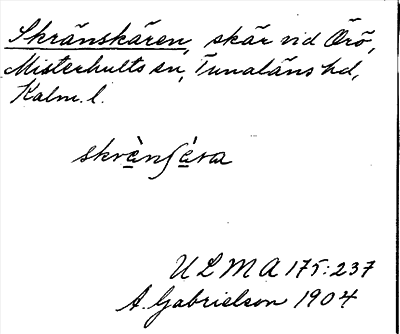 Skränskären, skär vid Örö,
Misterhults sn, Tunaläns hd,
Kalm. l.
skrä̀nʃä́ra
ULMA 175:237
A. Gabrielson 1904